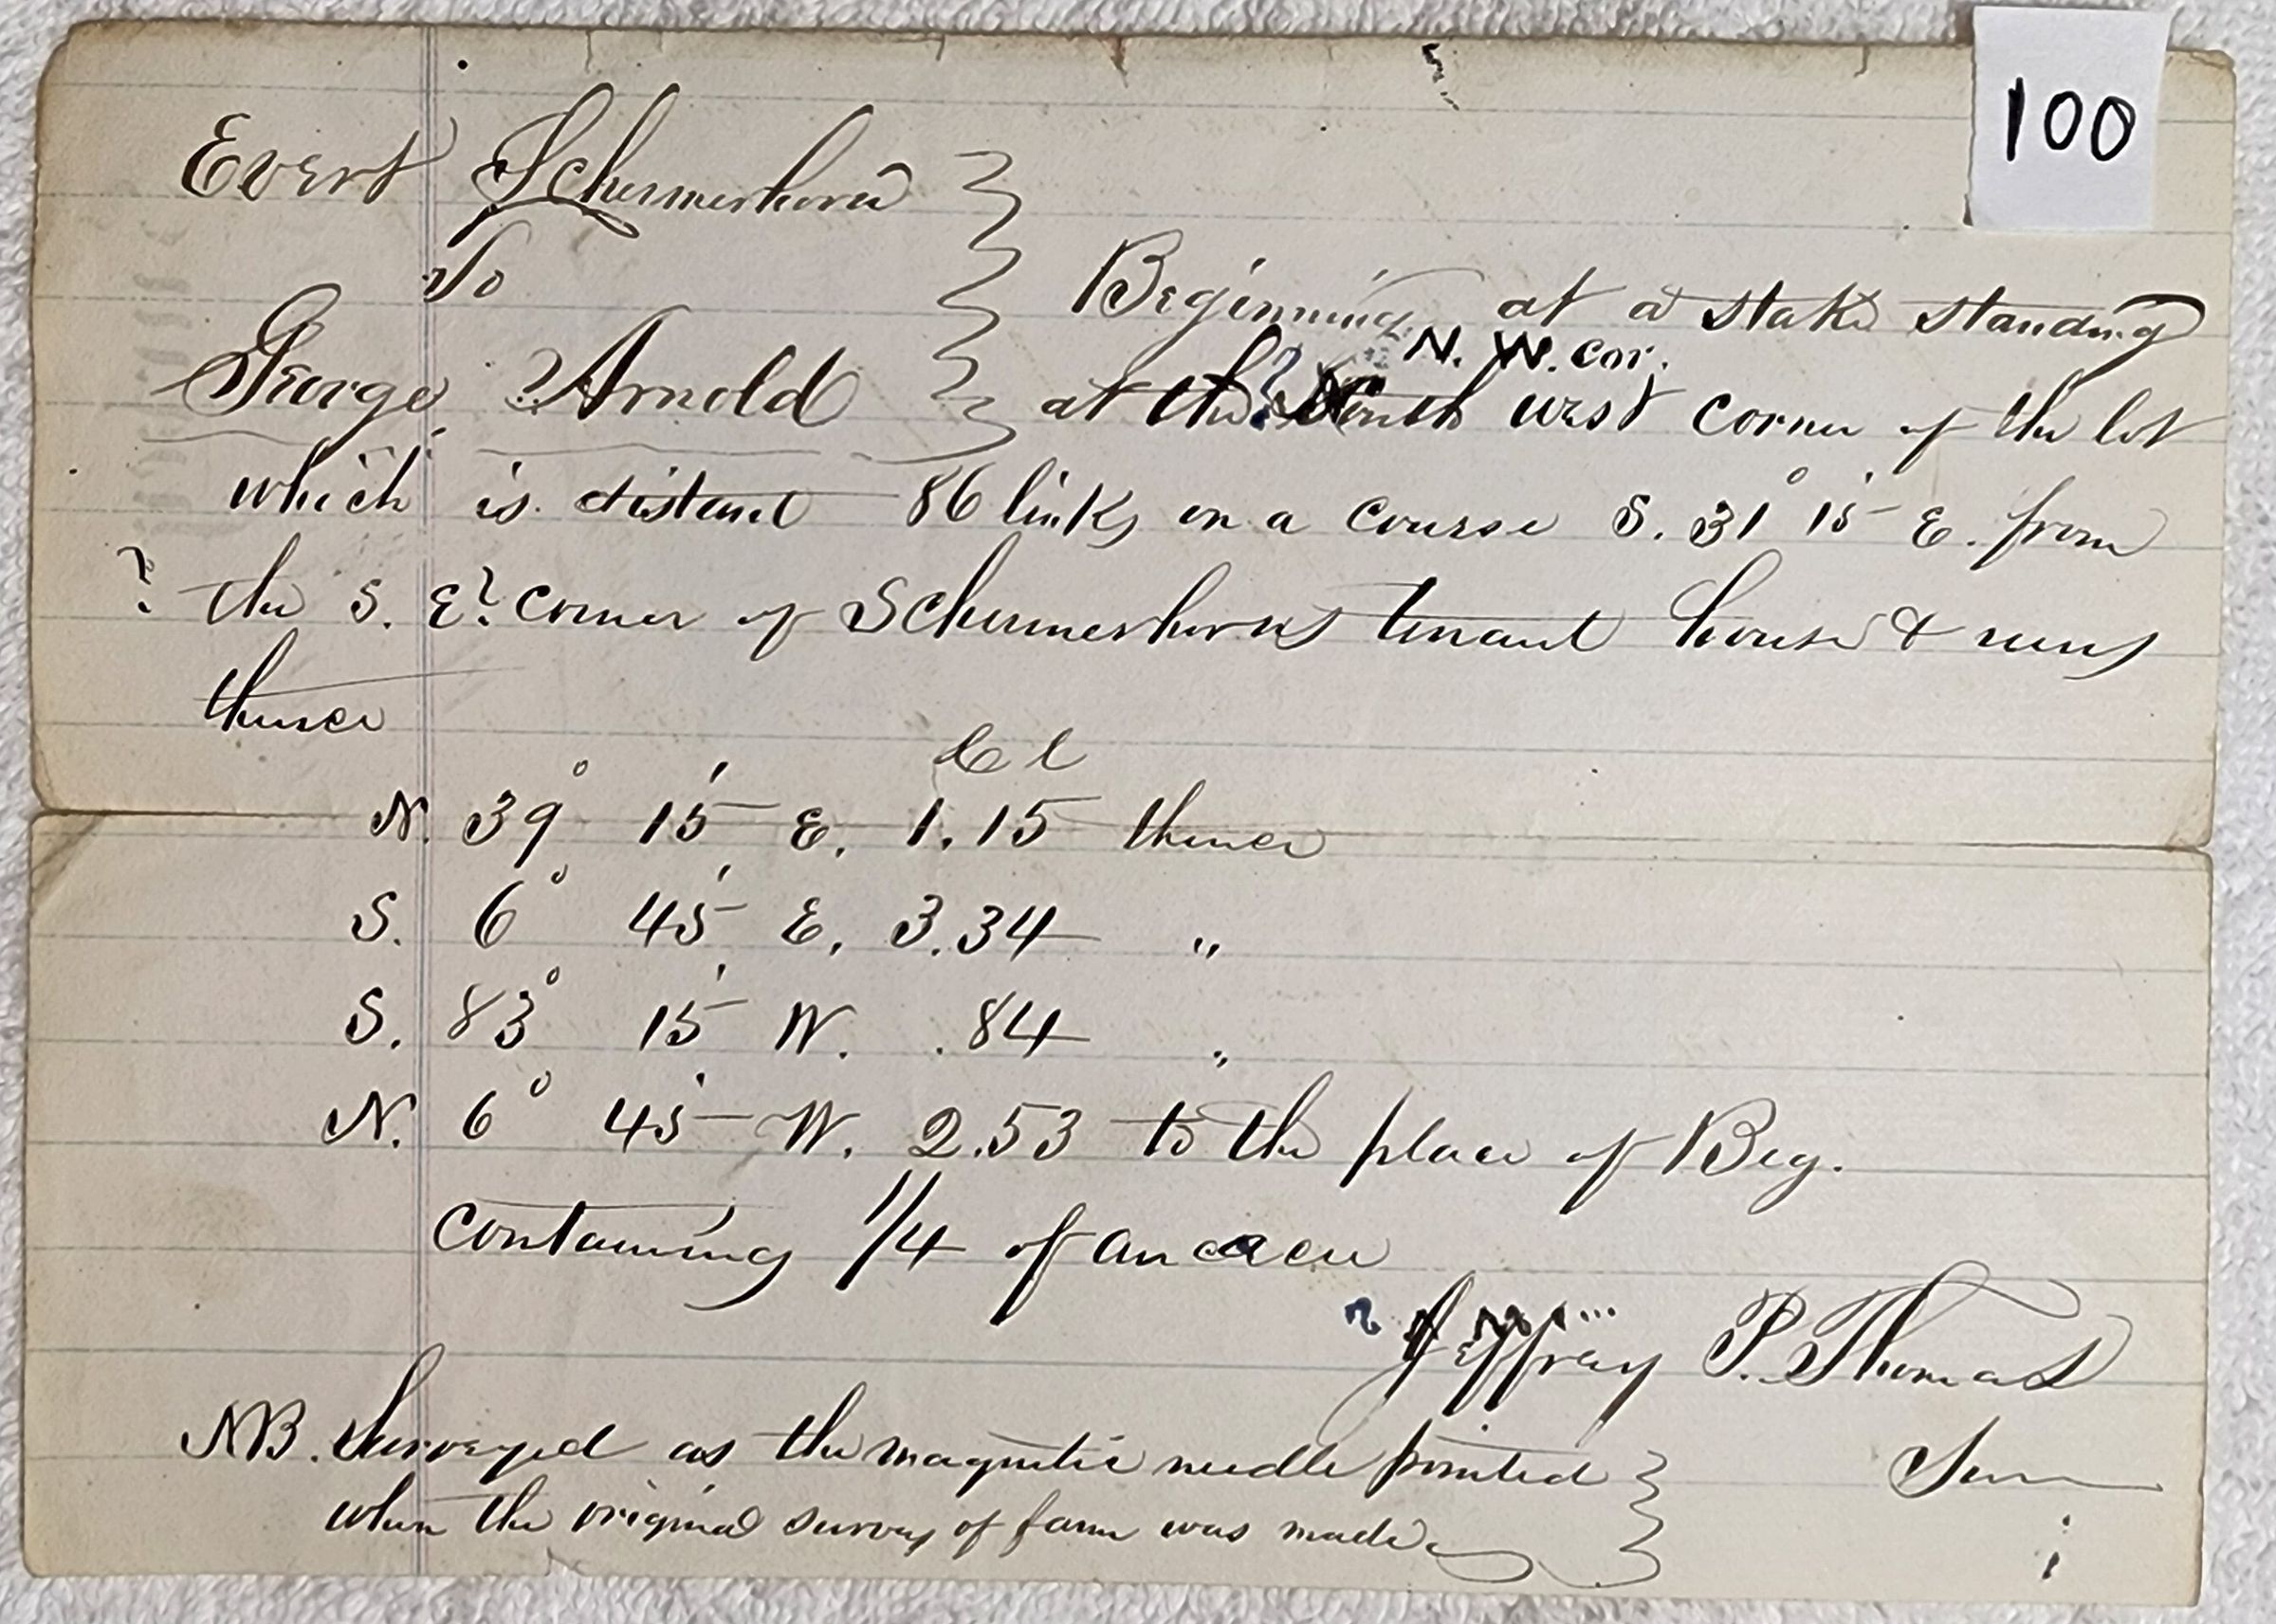 100
Evert Schermerhorn
To
Beginning at a stake standing
N. W. cor.
George Arnold at the ? North west corner of the lot
which is distant 86 links on a course S. 31° 15 E. from
? the S. E? corner of Schermerhorns tenant house & runs
thence
C l
N. 39° 15' E. 1.15 thence
S. 6° 45' E. 3.34 "
S. 83° 15' W. .84 "
N. 6° 45' W. 2.53 to the place of Beg.
containing 1/4 of an acre
? Jeffrey P. Thomas
Sur
NB. Surveyed as the magnetic needle pointed
when the original survey of farm was made